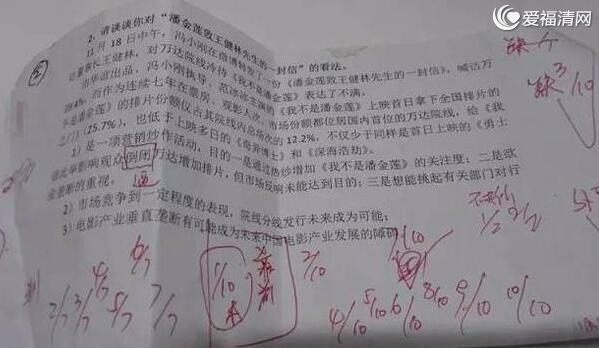 爱福清网
2、请谈谈你对“潘金莲致王健林先生的一封信”的看法。
11月18日中午,冯小刚在微博转发了一份《潘金莲致王健林先生的一封信》,喊话万
董事长王健林,对万达院线冷待《我不是潘金莲》表达了不满。
由华谊出品,冯小刚执导,范冰冰主演的《我不是潘金莲》上映首日拿下全国排片的
4%,而作为连续七年在票房、观影人次、市场份额都位居国内首位的万达院线,给《我
不是潘金莲》的排片份额仅占其院线内总场次的12.2%,不仅少于同样是首日上映的《勇士
之门》(25.7%),也低于上映多日的《奇异博士》和《深海浩劫》。
1)是一项营销炒作活动,目的一是通过热炒增加《我不是潘金莲》的关注度;二是欲
借此举影响观众倒闭万达增加排片,但市场反响未能达到目的;三是想能挑起有关部门对行
业垄断的重视。
逼
2)市场竞争到一定程度的表现,院线分线发行未来成为可能;
3)电影产业垂直垄断有可能成为未来中国电影产业发展的障碍
缺
3/10
1/2 2/2
1/10
2/10
2/7 3/7 4/7 5/7 6/7 7/7
4/10 5/10 6/10 8/10 9/10 10/10